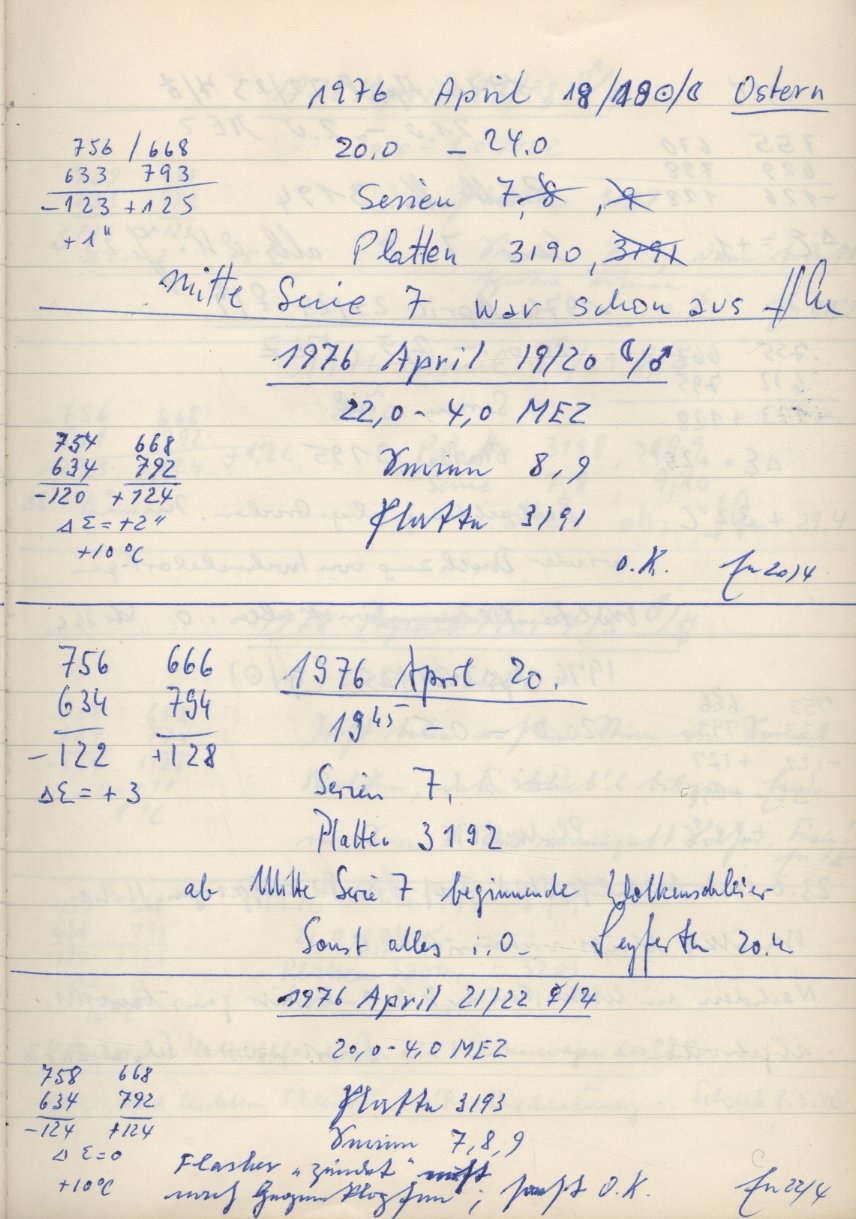 1976 April 18/19 ☉/☾ Ostern
756 / 668
633 793
-123 +125
+1"
20.0 - 24.0
Serien 7, 8, 9
Platten 3190, 3191
Mitte Serie 7 war schon aus
1976 April 19/20 ☾/♂
22,0 - 4,0 MEZ
754 668
634 792
-120 +124
Δε = +2"
+10°C
Serien 8,9
Platten 3191
O.K. 20/4
756 666
634 794
-122 +128
Δε = + 3
1976 April 20.
19 45 -
Serien 7,
Platten 3192
ab Mitte Serie 7 beginnende Wolkenschleier
Sonst alles i.O. Seyferth 20.4
1976 April 21/22 ☿/♃
20,0 - 4,0 MEZ
758 668
634 792
-124 +124
Δε=0
+10°C
Platten 3193
Serien 7,8,9
Flasher „zündet“
nach ; sonst O.K. 22/4